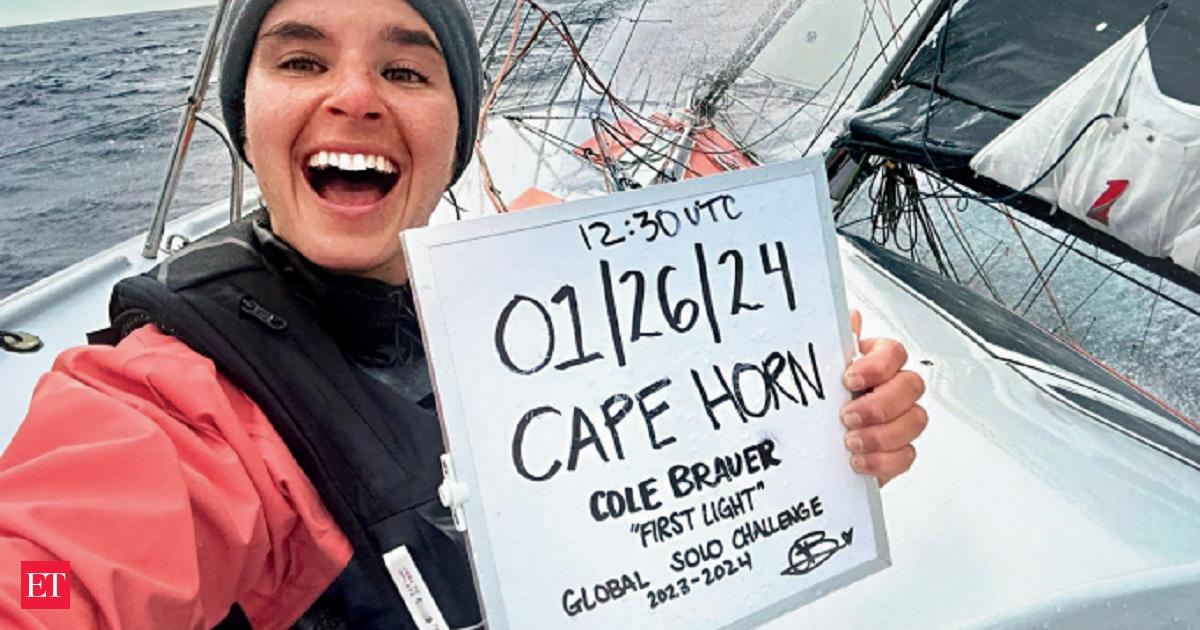 12:30 UTC
01/26/24
CAPE HORN
COLE BRAUER
"FIRST LIGHT"
GLOBAL SOLO CHALLENGE
2023-2024
1
ET